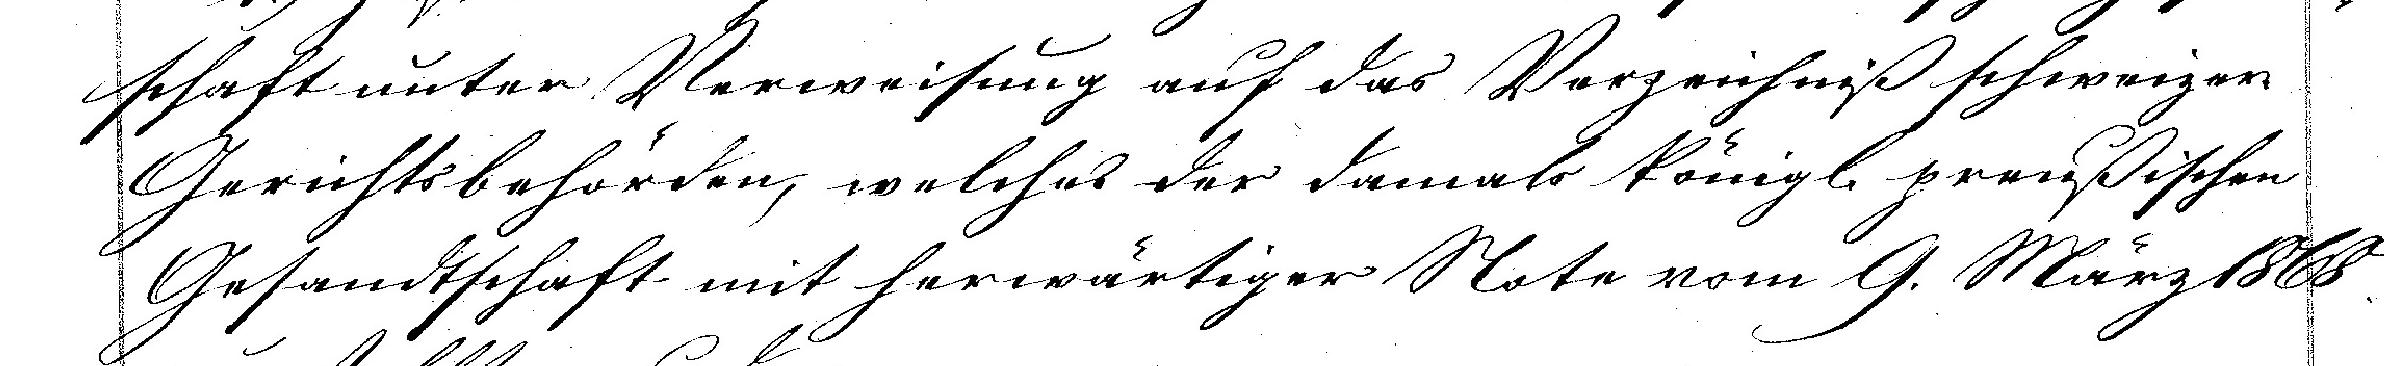 schaft unter Verweisung auf das Verzeichniß schweizer.
Gerichtsbehörden, welches der damals königl. preußischen
Gesandtschaft mit herwärtiger Note vom 9. März 1868